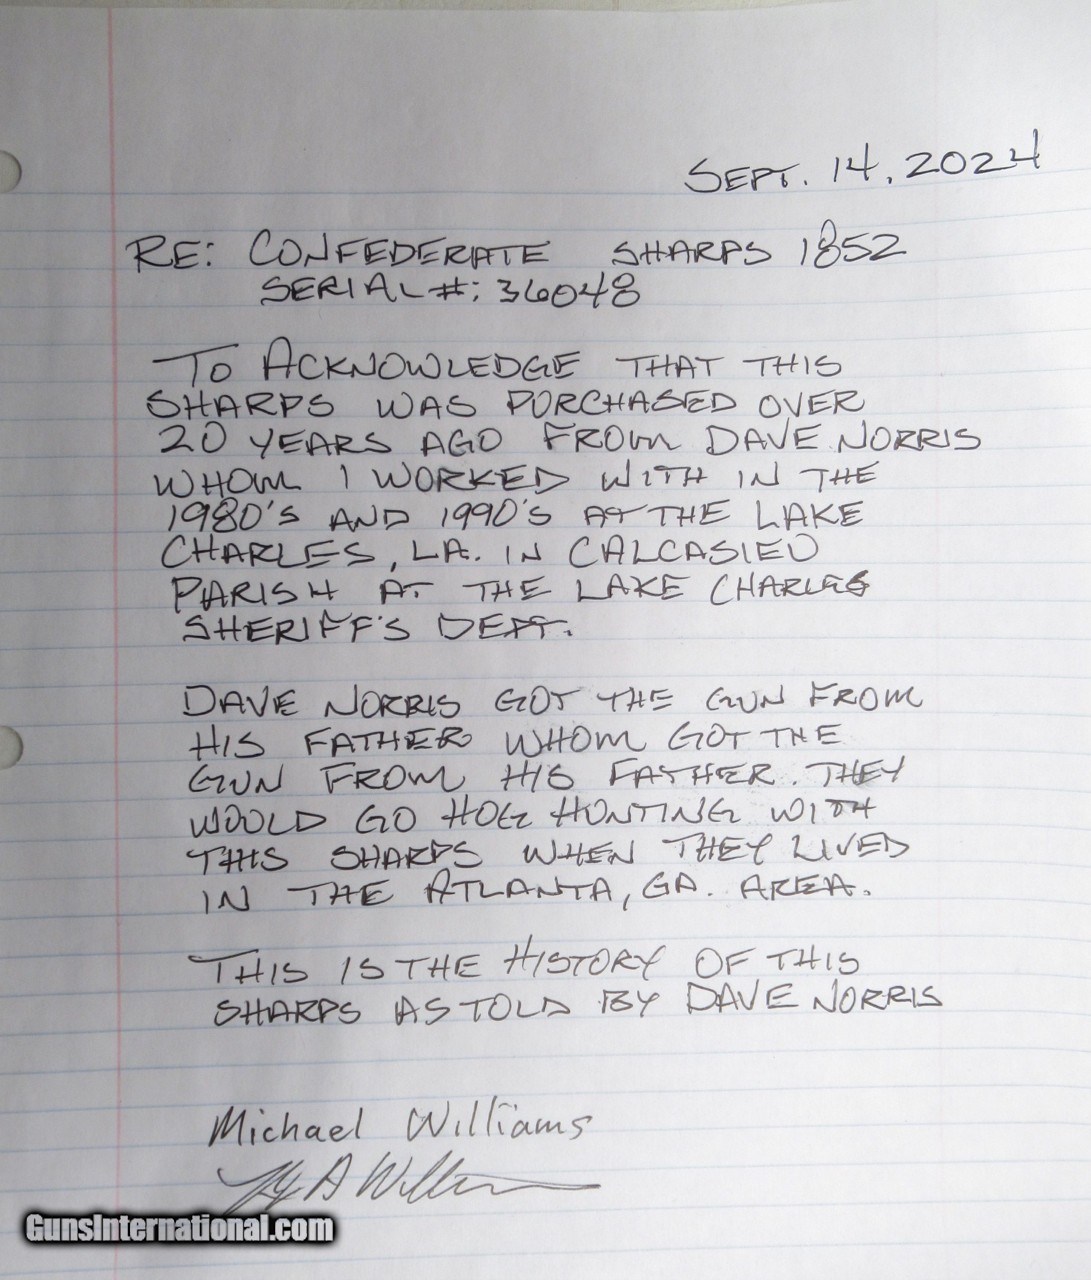 SEPT. 14, 2024
RE: CONFEDERATE SHARPS 1852
SERIAL #: 36048
TO ACKNOWLEDGE THAT THIS
SHARPS WAS PURCHASED OVER
20 YEARS AGO FROM DAVE NORRIS
WHOM I WORKED WITH IN THE
1980'S AND 1990'S AT THE LAKE
CHARLES, LA. IN CALCASIEU
PARISH AT THE LAKE CHARLES
SHERIFF'S DEPT.
DAVE NORRIS GOT THE GUN FROM
HIS FATHER WHOM GOT THE
GUN FROM HIS FATHER. THEY
WOULD GO HOG HUNTING WITH
THIS SHARPS WHEN THEY LIVED
IN THE ATLANTA, GA. AREA.
THIS IS THE HISTORY OF THIS
SHARPS AS TOLD BY DAVE NORRIS
Michael Williams
GunsInternational.com